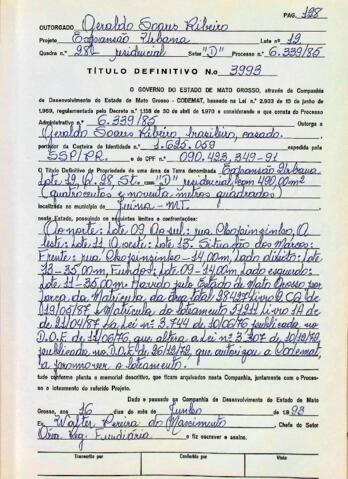 PAG. 128
OUTORGADO Geraldo Soares Ribeiro
Projeto Expansão Urbana Lote n.º 12
Quadra n.º 98 residencial Setor "D" Processo n.º 6.339/85
TÍTULO DEFINITIVO N.o 3993
O GOVERNO DO ESTADO DE MATO GROSSO, através da Companhia
de Desenvolvimento do Estado de Mato Grosso - CODEMAT, baseado na Lei n.º 2.933 de 10 de junho de
1.969, regulamentada pelo Decreto n.º 1.138 de 30 de abril de 1.970 e considerando o que consta do Processo
Administrativo n.º 6.339/85 Outorga a
Geraldo Soares Ribeiro, brasileiro, casado.
portador da Carteira de Identidade n.º 1.625.059 expedida pela
SSP/PR. e do CPF n.º 090.423.349-91
O Título Definitivo de Propriedade de uma área de Terra denominada Expansão Urbana
Lote 12 Q. 98 St. "D" residencial, com 490,00m²
(quatrocentos e noventa metros quadrados)
localizada no município de Juína - MT.
neste Estado, possuindo os seguintes limites e confrontações:
Ao norte: Lote 09. Ao sul: rua Chopinzinho. A
leste: Lote 11. A oeste: Lote 13. Situação dos Marcos:
Frente: rua Chopinzinho - 14,00m, Lado direito: Lote
13 - 35,00m, Fundos: Lote 09 - 14,00m Lado esquerdo:
Lote 11 - 35,00m. Havido pelo Estado de Mato Grosso por
força da Matrícula da área total Livro 2 de
19/05/87 e Matrícula do loteamento Livro de
de 21/04/87. Lei nº 3.744 de 10/06/76 publicada no
D.O.E de 11/06/76, que altera a Lei nº 3.307 de 10/12/72,
publicada no D.O.E de 26/12/72, que autorizou a Codemat,
a promover o loteamento.
tudo conforme planta e memorial descritivo, que ficam arquivados nesta Companhia, juntamente com o Proces-
so e loteamento do referido Projeto.
Dado e passado na Companhia de Desenvolvimento do Estado de Mato
Grosso, aos 16 dias do mês de Junho de 1.993
Eu, Walter Pereira do Nascimento, Chefe do Setor
Fundiária o fiz escrever e assino.
Transcrito por
Conferido por
Visto